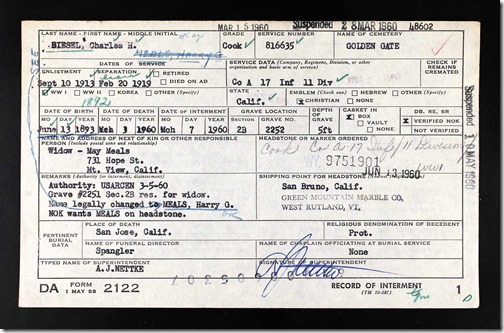 MAR 15 1960 Suspended 28 MAR 1960 48602
LAST NAME - FIRST NAME - MIDDLE INITIAL GRADE SERVICE NUMBER NAME OF CEMETERY
BIESEL, Charles H. Cook 816635 GOLDEN GATE
MEALS, Harry G.
DATES OF SERVICE SERVICE DATA (Company, Regiment, Division, or other organization and basic arm of service) CHECK IF REMAINS CREMATED
ENLISTMENT SEPARATION RETIRED
DIED ON AD
Sept 10 1913 Feb 20 1919 Co A 17 Inf 11 Div
WW I WW II KOREA OTHER (Specify) STATE EMBLEM (Check) HEBREW OTHER (Specify)
1892 Calif. CHRISTIAN NONE
DATE OF BIRTH DATE OF DEATH DATE OF INTERMENT GRAVE LOCATION DEPTH CASKET IN DB, RE, SR
MO DAY YEAR MO DAY YEAR MO DAY YEAR SECTION GRAVE NO. BOX VERIFIED NOK
June 13 1893 Mch 3 1960 Mch 7 1960 2B 2252 5ft VAULT VERIFIED NOK
NAME AND ADDRESS OF NEXT OF KIN OR OTHER RESPONSIBLE PERSON (Include postal zone and relationship) HEADSTONE OR MARKER ORDERED
Widow - May Meals Cook Co A 17 Inf 11 Division
731 Hope St. WY 9751901 WW1
Mt. View, Calif. JUN 13 1960
REMARKS (Authority for interment, disinterment) SHIPPING POINT FOR HEADSTONE
Authority: USARCEN 3-5-60 San Bruno, Calif.
Grave #2251 Sec.2B res. for widow. GREEN MOUNTAIN MARBLE CO.
Name legally changed to MEALS, Harry G. WEST RUTLAND, VT.
NOK wants MEALS on headstone.
Suspended 18 MAY 1960
PERTINENT BURIAL DATA PLACE OF DEATH RELIGIOUS DENOMINATION OF DECEDENT
San Jose, Calif. Prot.
NAME OF FUNERAL DIRECTOR NAME OF CHAPLAIN OFFICIATING AT BURIAL SERVICE
Spangler None
TYPED NAME OF SUPERINTENDENT SIGNATURE OF SUPERINTENDENT
A.J.NETTKE
DA FORM 1 MAY 58 2122 RECORD OF INTERMENT 1
(TM 10-287)